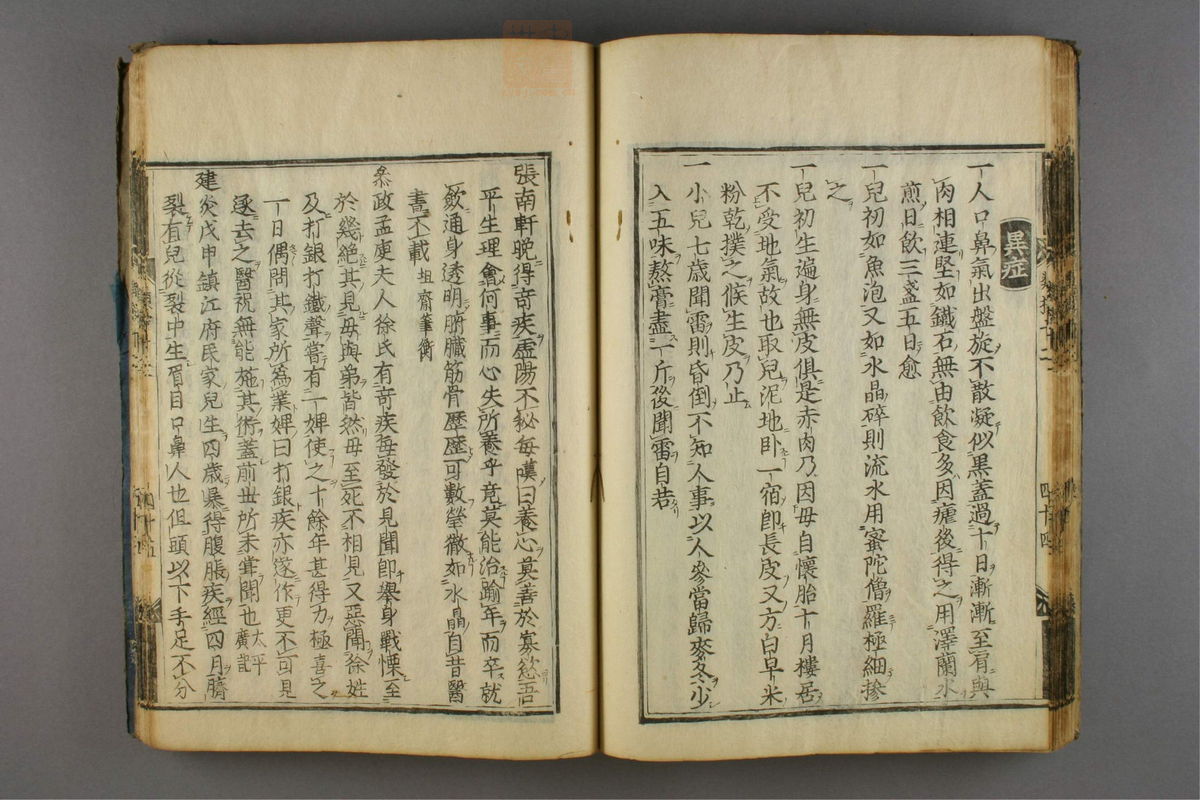 異症
一人口鼻氣出盤旋不散凝似黒蓋過十日漸漸至肩與
肉相連堅如鐵石無由飲食多因瘧後得之用澤蘭水
煎日飲三盞五日愈
一兒初如魚泡又如水晶碎則流水用蜜陀僧羅極細摻
之
一兒初生遍身無皮俱是赤肉乃因母自懷胎十月樓居
不受地氣故也取兒泥地卧一宿即長皮又方白早米
粉乾撲之候生皮乃止
一小兒七歳聞雷則昏倒不知人事以人參當歸麥冬少
入五味熬膏盡一斤後聞雷自若
張南軒晩得奇疾虚陽不秘毎嘆曰養心莫善於寡慾吾
平生理會何事而心失所養乎竟莫能治踰年而卒就
斂通身透明腑臓筋骨歴歴可數瑩徹如水晶自昔醫
書不載 坦齋筆衡
參政孟庾夫人徐氏有奇疾毎發於見聞即擧身戰慄至
於幾絶其見母與弟皆然母至死不相見又惡聞徐姓
及打銀打鐵聲嘗有一婢使之十餘年甚得力極喜之
一日偶問其家所為業婢曰打銀疾亦遂作更不可見
逐去之醫祝無能施其術蓋前世所未甞聞也 太平廣記
建炎戊申鎮江府民家兒生四歳暴得腹脹疾經四月臍
裂有兒從裂中生眉目口鼻人也但頭以下手足不分
四十四